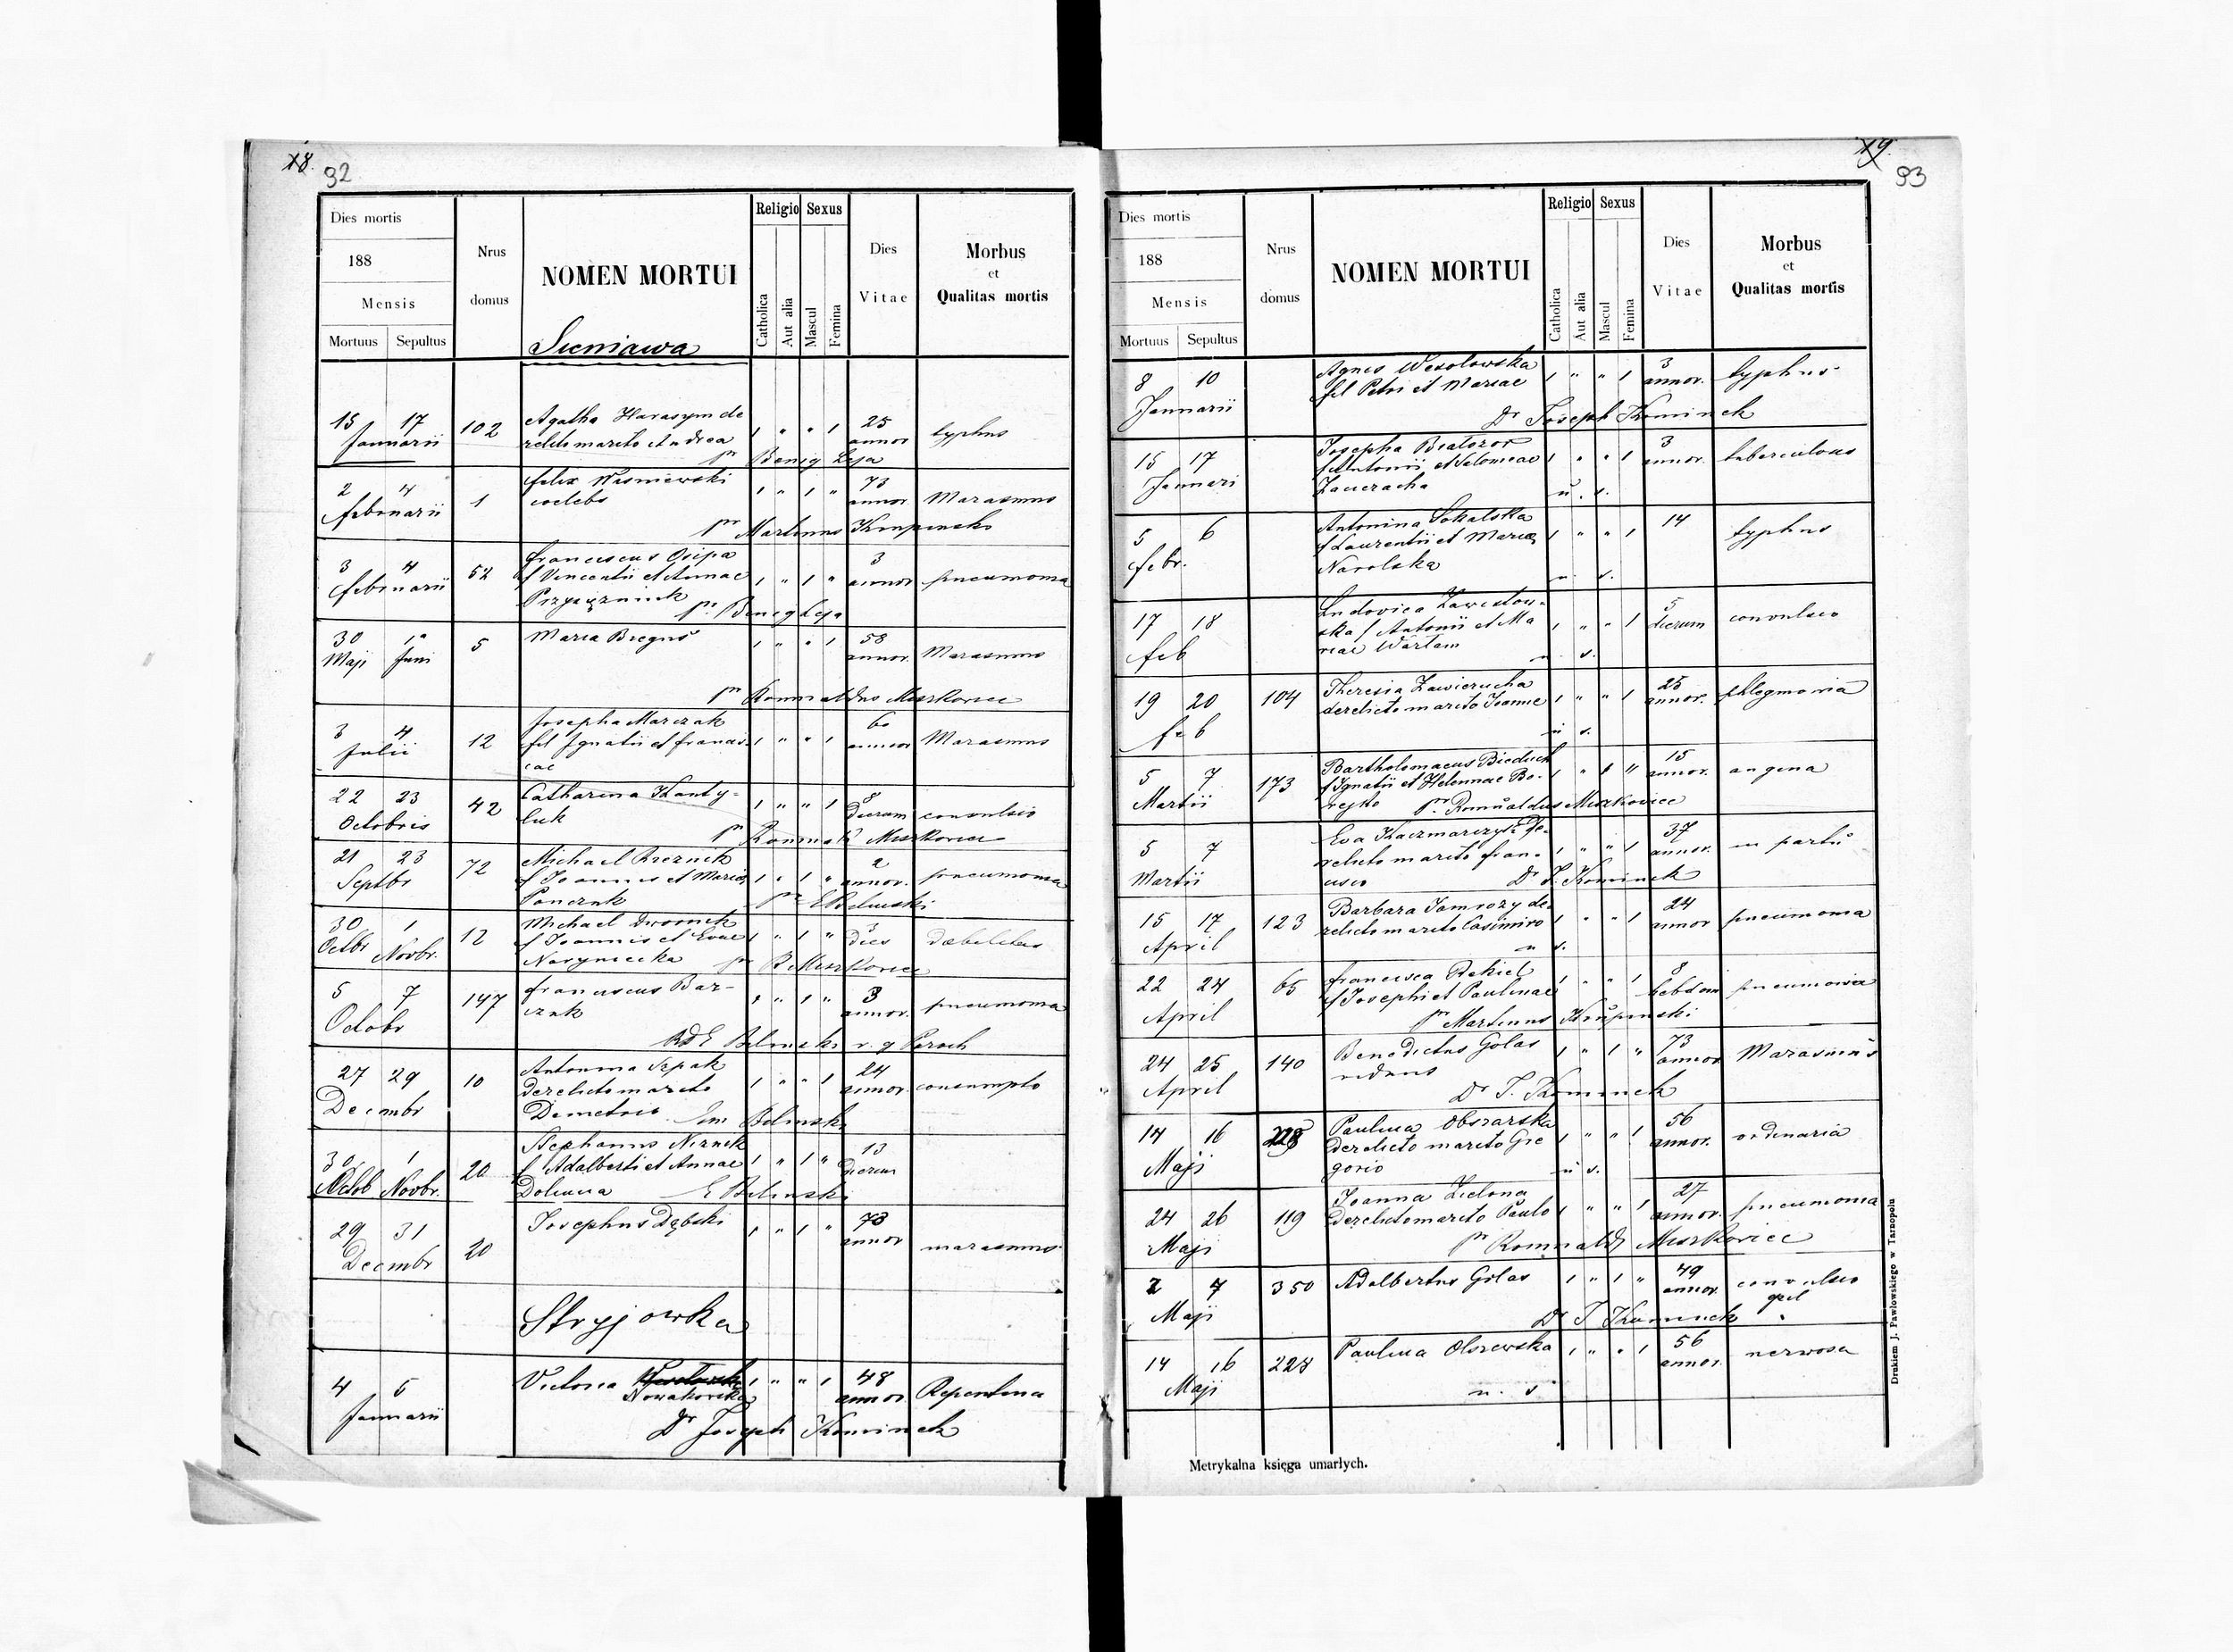 18.
92
Dies mortis
188
Mensis
Mortuus Sepultus
Nrus
domus
NOMEN MORTUI
Sieniawa
Religio Sexus
Catholica
Aut alia
Mascul
Femina
Dies
Vitae
Morbus
et
Qualitas mortis
15 17 102 Agatha Harasym de 1 " " 1 25 typhus
Januarii relicto marito Andrea annor
pr Benig Leja
2 4 1 Felix Wasniewski 1 " 1 " 73 Marasmus
februarii coelebs annor
pr Martinus Krupinski
3 4 52 franciscus Osipa 3
februarii f Vincentii et Annae 1 " 1 " annor pneumonia
pr. Benig Leja
30 1 5 Maria 1 " " 1 58
Maji Juni annor. Marasmus
pr Romualdus Miszkovice
3 4 12 Josepha Marczak 60
Julii fil Ignatii et francis 1 " " 1 annor Marasmus
cae
22 23 42 Catharina 1 " " 1 8
Octobris dierum convulsio
pr Romuald Miszkovice
21 23 72 Michael 2
Septbr f Joannis et Mariae 1 " 1 " annor. pneumonia
pr E Belinski
30 1 12 Michael Dwornik 3
Octbr Novbr. f Joannis et Evae 1 " 1 " dies debilitas
pr R Miszkovice
5 7 147 franciscus Bar- 1 " 1 " 3 pneumonia
Octobr czuk annor.
E Belinski r. g Paroch
27 29 10 Antonina Szpak 24
Decembr derelicto marito 1 " " 1 annor. consumptio
Demetrio Em Belinski
30 1 20 Stephanus 13
Octob Novbr. f Adalberti et Annae 1 " 1 " dierum
E Belinski
29 31 20 Josephus Dębski 1 " 1 " 73
Decembr annor marasmus
Stryjowka
4 5 Victoria 1 " " 1 48 Repentina
Januarii Nowakowska annor
Dr Joseph Kominek
19.
93
Dies mortis
188
Mensis
Mortuus Sepultus
Nrus
domus
NOMEN MORTUI
Religio Sexus
Catholica
Aut alia
Mascul
Femina
Dies
Vitae
Morbus
et
Qualitas mortis
8 10 Agnes Wesolowska 1 " " 1 3 typhus
Januarii fil Petri et Mariae annor.
Dr Joseph Kominek
15 17 Josepha Bialozor 3
Januari f Antonii et Salomeae 1 " " 1 annor. tuberculous
u. s.
5 6 Antonina Sokalska 14
febr. f Laurentii et Mariae 1 " " 1 typhus
Narolska
u. s.
17 18 Ludovica Zawistow- 5
feb ska f Antonii et Ma 1 " " 1 dierum convulsio
riae Wartam u. s.
19 20 104 Theresia Zawierucha 25
feb derelicto marito Joanne 1 " " 1 annor. phlegmonia
u s.
5 7 173 Bartholomaeus Bieduch 15
Martii f Ignatii et Helennae Bo- 1 " 1 " annor. angina
rejko pr. Romualdus Miszkovice
5 7 Eva Kaczmarczyk de- 37
Martii relicto marito fran- 1 " " 1 annor. in partu
cisco Dr J. Kominek
15 17 123 Barbara Jamrozy de- 24
April relicto marito Casimiro 1 " " 1 annor pneumonia
u s.
22 24 65 francisca 1 " " 1 8
April f Josephi et Paulinae hebdom pneumonia
pr Martinus Krupinski
24 25 140 Benedictus Golas 1 " 1 " 73 Marasmus
April viduus annor
Dr J. Kominek
14 16 228 Paulina 56
Maji derelicto marito Gre 1 " " 1 annor. ordinaria
gorio u s.
24 26 119 Joanna Zielona 27
Maji derelicto marito Paulo 1 " " 1 annor. pneumonia
pr Romuald Miszkovice
2 7 350 Adalbertus Golas 1 " 1 " 49 convulsio
Maji annor.
Dr J Kominek
14 16 228 Paulina Olszewska 1 " " 1 56 nerwosa
Maji annor
u. s
Metrykalna księga umarłych.
Drukiem J. Pawlowskiego w Tarnopolu